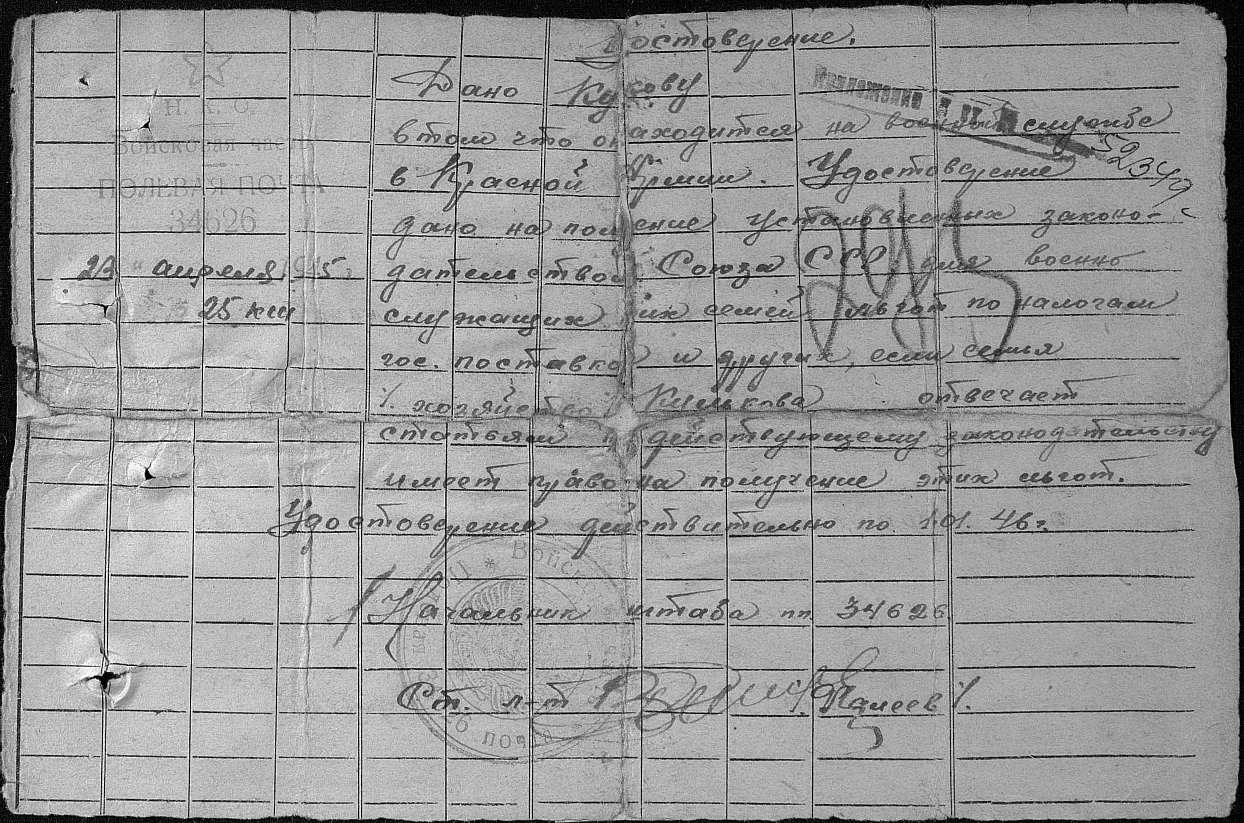 Удостоверение.
Н. К. О.
Войсковая часть
ПОЛЕВАЯ ПОЧТА
34626
23 " апреля 1945 г.
25 км
Дано Кулькову
в том что он находится на военной службе
в Красной Армии. Удостоверение
дано на получение установленных законо-
дательством Союза ССР для военно
служащих и их семей льгот по налогам
гос. поставкам и других, если семья
/. хозяйство /. Кулькова отвечает
статьям по действующему законодательству
имеет право на получение этих льгот.
Удостоверение действительно по 1.01.46 г.
Начальник штаба пп 34626
Ст. л-т Палеев /.
52349